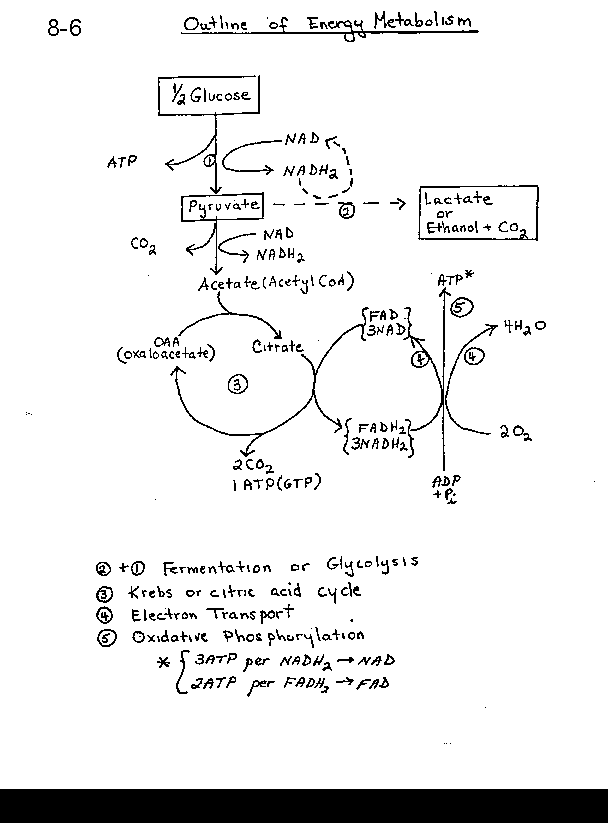 8-6
Outline of Energy Metabolism
½ Glucose
ATP
①
NAD
NADH₂
Pyruvate
②
Lactate
or
Ethanol + CO₂
CO₂
NAD
NADH₂
Acetate (Acetyl CoA)
ATP*
⑤
OAA
(oxaloacetate)
Citrate
{FAD}
{3NAD}
④
④
4H₂O
③
{FADH₂}
{3NADH₂}
2O₂
2CO₂
1 ATP (GTP)
ADP
+ Pi
② + ① Fermentation or Glycolysis
③ Krebs or citric acid cycle
④ Electron Transport
⑤ Oxidative Phosphorylation
* { 3ATP per NADH₂ → NAD
2ATP per FADH₂ → FAD